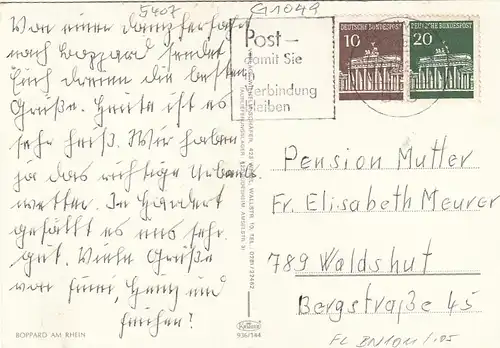 5407
G1049
Von einer Dampferfahrt
nach Boppard sendet
Euch dreien die besten
Grüße. Heute ist es
sehr heiß. Wir haben
ja das richtige Urlaubs
wetter. In
gefällt es uns sehr
gut. Viele Grüße
von
BOPPARD AM RHEIN
DEUTSCHE BUNDESPOST
10
DEUTSCHE BUNDESPOST
20
Post –
damit Sie
in Verbindung
bleiben
Krüger
936/144
Pension Mutter
Fr. Elisabeth Meurer
789 Waldshut
Bergstraße 45